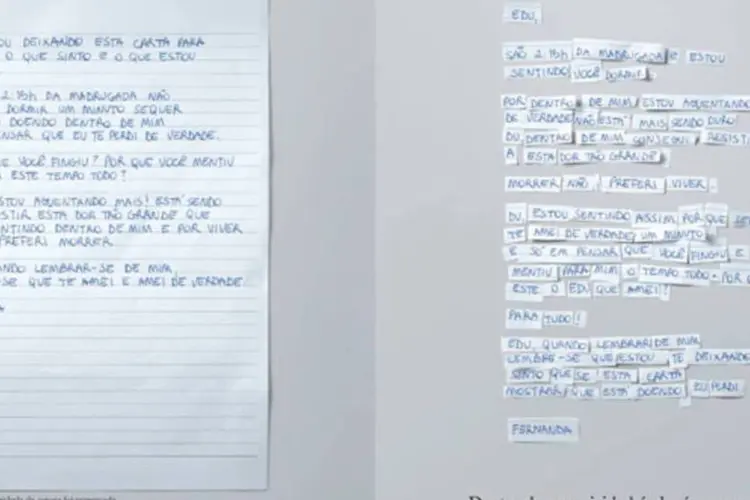 OU DEIXANDO ESTA CARTA PARA
O QUE SINTO E O QUE ESTOU
2:15h DA MADRUGADA NÃO
DORMIR UM MINUTO SEQUER
DOENDO DENTRO DE MIM
ENSAR QUE EU TE PERDI DE VERDADE.
E VOCÊ FINGIU? POR QUE VOCÊ MENTIU
ESTE TEMPO TODO?
STOU AGUENTANDO MAIS! ESTÁ SENDO
ISTIR ESTA DOR TÃO GRANDE QUE
NTINDO DENTRO DE MIM E POR VIVER
PREFERI MORRER.
ANDO LEMBRAR-SE DE MIM,
-SE QUE TE AMEI E AMEI DE VERDADE.
EDU,
SÃO 2:15h DA MADRUGADA E ESTOU
SENTINDO VOCÊ DORMIR.
POR DENTRO DE MIM ESTOU AGUENTANDO
DE VERDADE NÃO ESTÁ MAIS SENDO DURO
OU DENTRO DE MIM CONSEGUI RESIST
A ESTA DOR TÃO GRANDE
MORRER NÃO, PREFERI VIVER.
ESTOU SENTINDO ASSIM, POR QUE SE
TE AMEI DE VERDADE UM MINUTO
E SÓ EM PENSAR QUE VOCÊ FINGIU E
MENTIU PARA MIM O TEMPO TODO. POR
ESTE O EDU QUE AMEI?
PARA TUDO!
EDU, QUANDO LEMBRAR DE MIM,
LEMBRE-SE QUE ESTOU TE DEIXANDO
SINTO QUE SE ESTA CARTA
MOSTRAR QUE ESTÁ DOENDO EU PERDI
FERNANDA